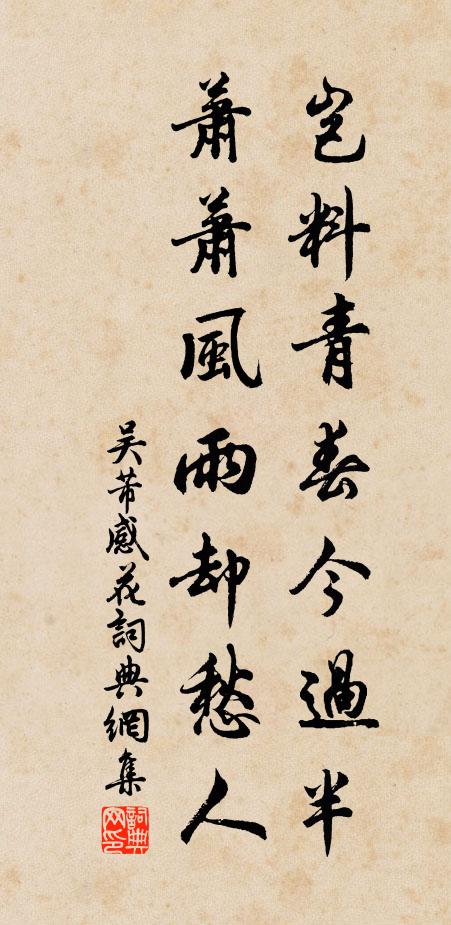 豈料青春今過半
蕭蕭風雨却愁人
吴芾感花詞典網集
詞典網印